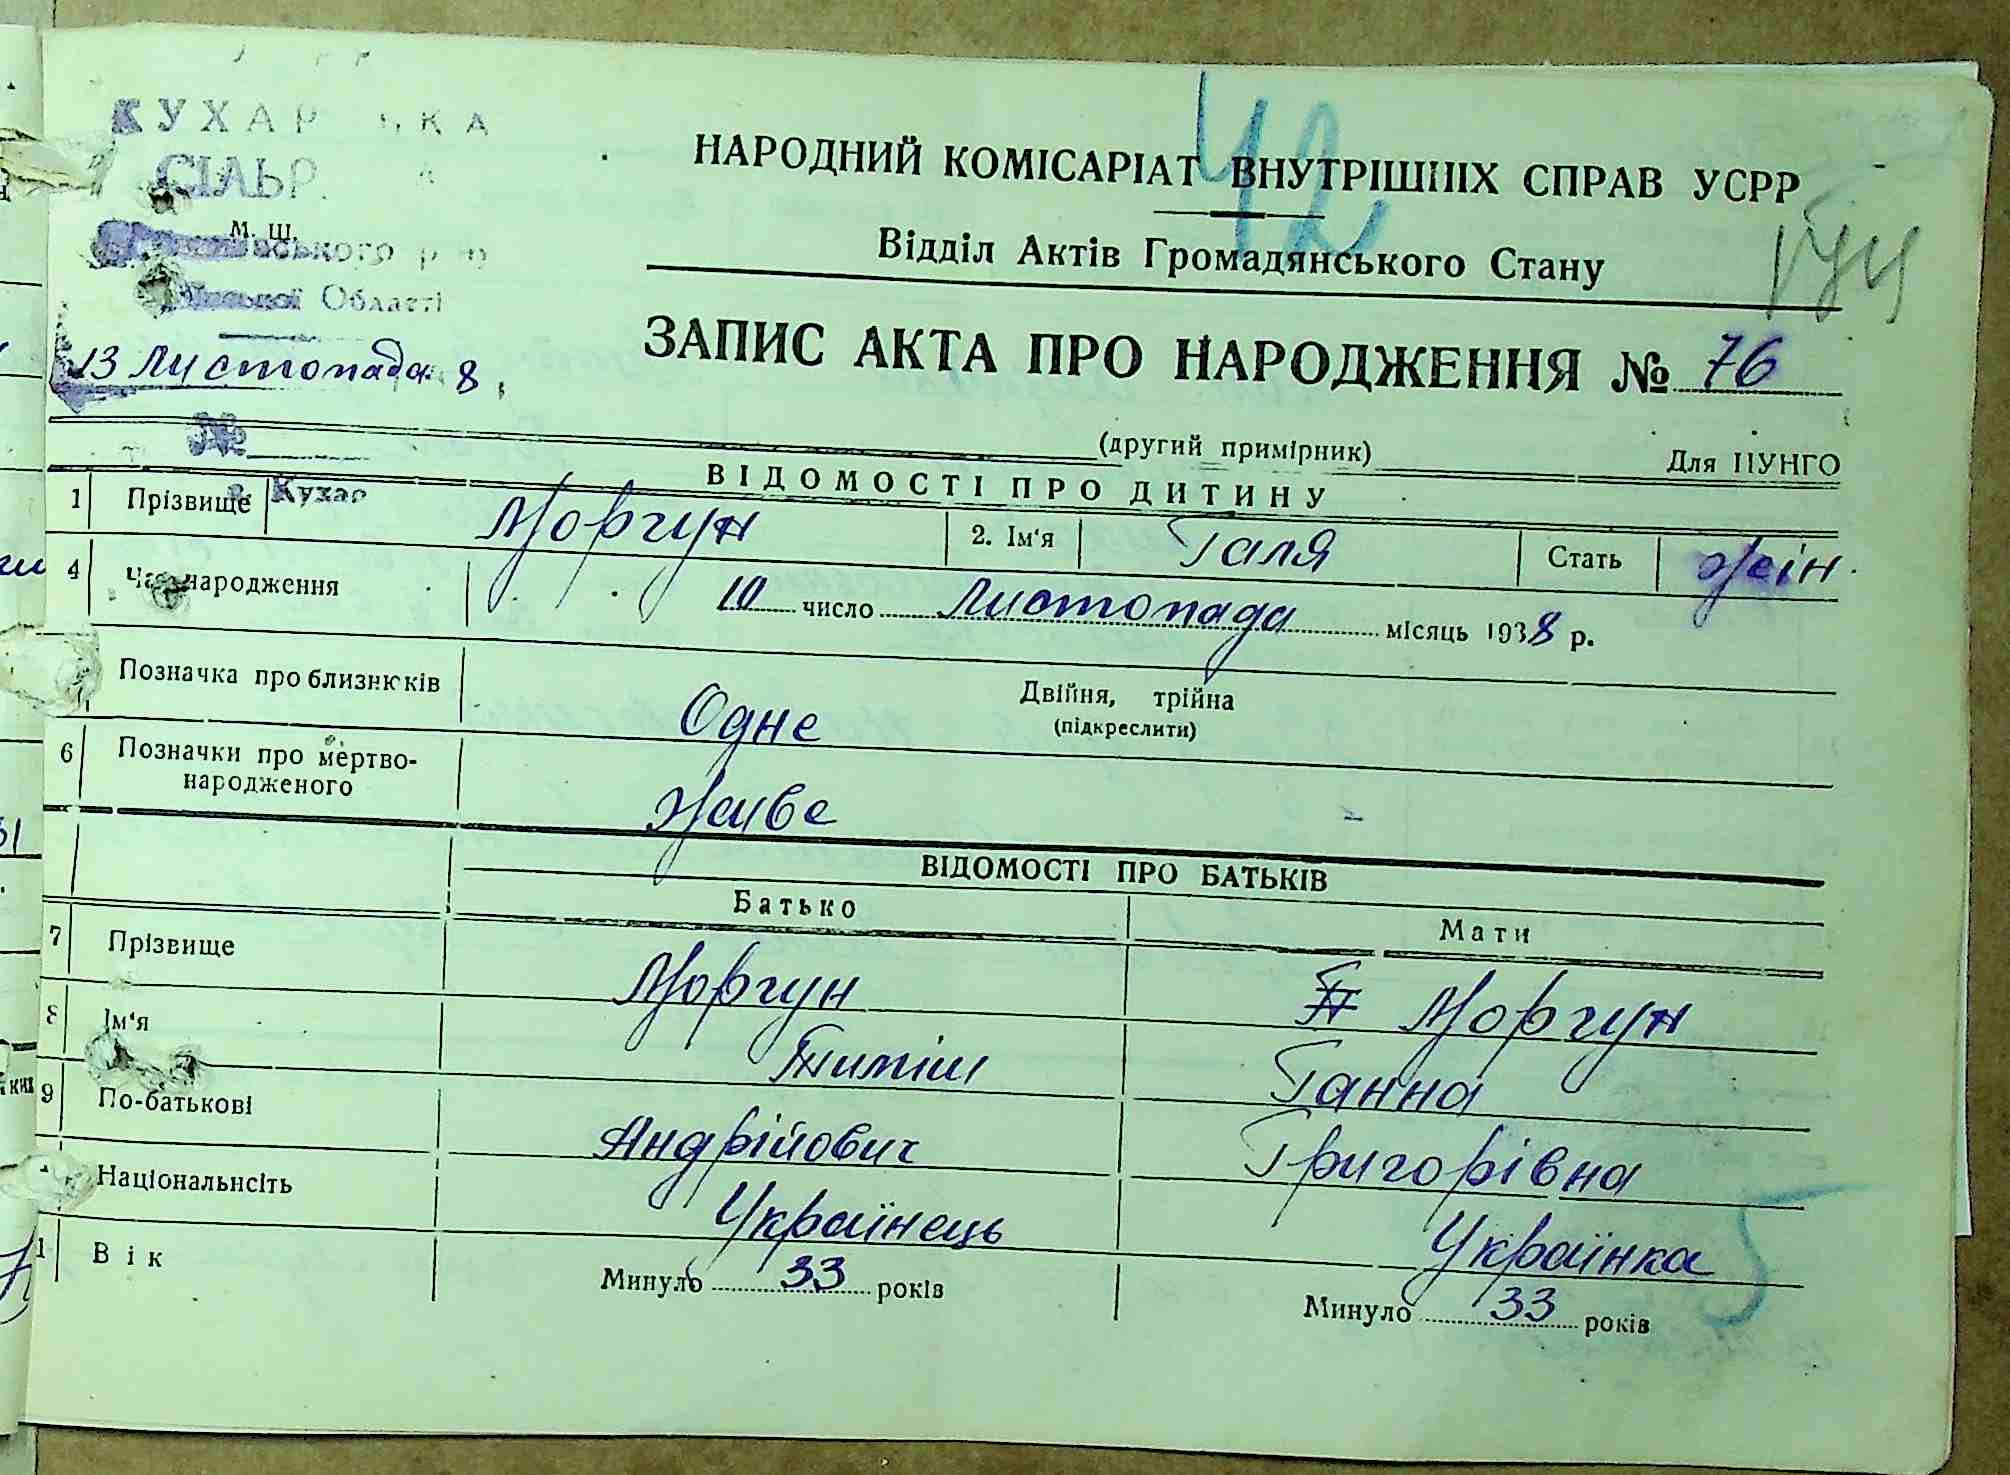 КУХАР ЬКА
СІЛЬР
М. Ш.
ського р
Області
13 Листопада 8
№
с. Кухар
42
НАРОДНИЙ КОМІСАРІАТ ВНУТРІШНІХ СПРАВ УСРР
Відділ Актів Громадянського Стану
ЗАПИС АКТА ПРО НАРОДЖЕННЯ № 76
(другий примірник) Для ЦУНГО
ВІДОМОСТІ ПРО ДИТИНУ
1 Прізвище Моргун 2. Ім'я Галя Стать жін.
4 Час народження 10 число Листопада місяць 1938 р.
Позначка про близнюків Одне Двійня, трійна
(підкреслити)
6 Позначки про мертво-
народженого Живе
ВІДОМОСТІ ПРО БАТЬКІВ
Батько Мати
7 Прізвище Моргун Моргун
8 Ім'я Тиміш Ганна
9 По-батькові Андрійович Григорівна
Національнсіть Українець Українка
1 Вік Минуло 33 років Минуло 33 років
5